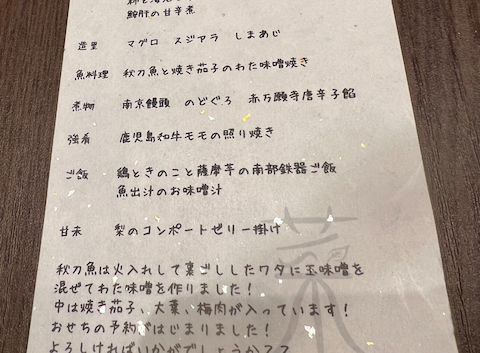 鮟肝の甘辛煮
造里 マグロ スジアラ しまあじ
魚料理 秋刀魚と焼き茄子のわた味噌焼き
煮物 南京饅頭 のどぐろ 赤万願寺唐辛子餡
強肴 鹿児島和牛モモの照り焼き
ご飯 鶏ときのこと薩摩芋の南部鉄器ご飯
魚出汁のお味噌汁
甘未 梨のコンポートゼリー掛け
秋刀魚は火入れして裏ごししたワタに玉味噌を
混ぜてわた味噌を作りました!
中は焼き茄子、大葉、梅肉が入っています!
おせちの予約がはじまりました!
よろしければいかがでしょうか??
菜